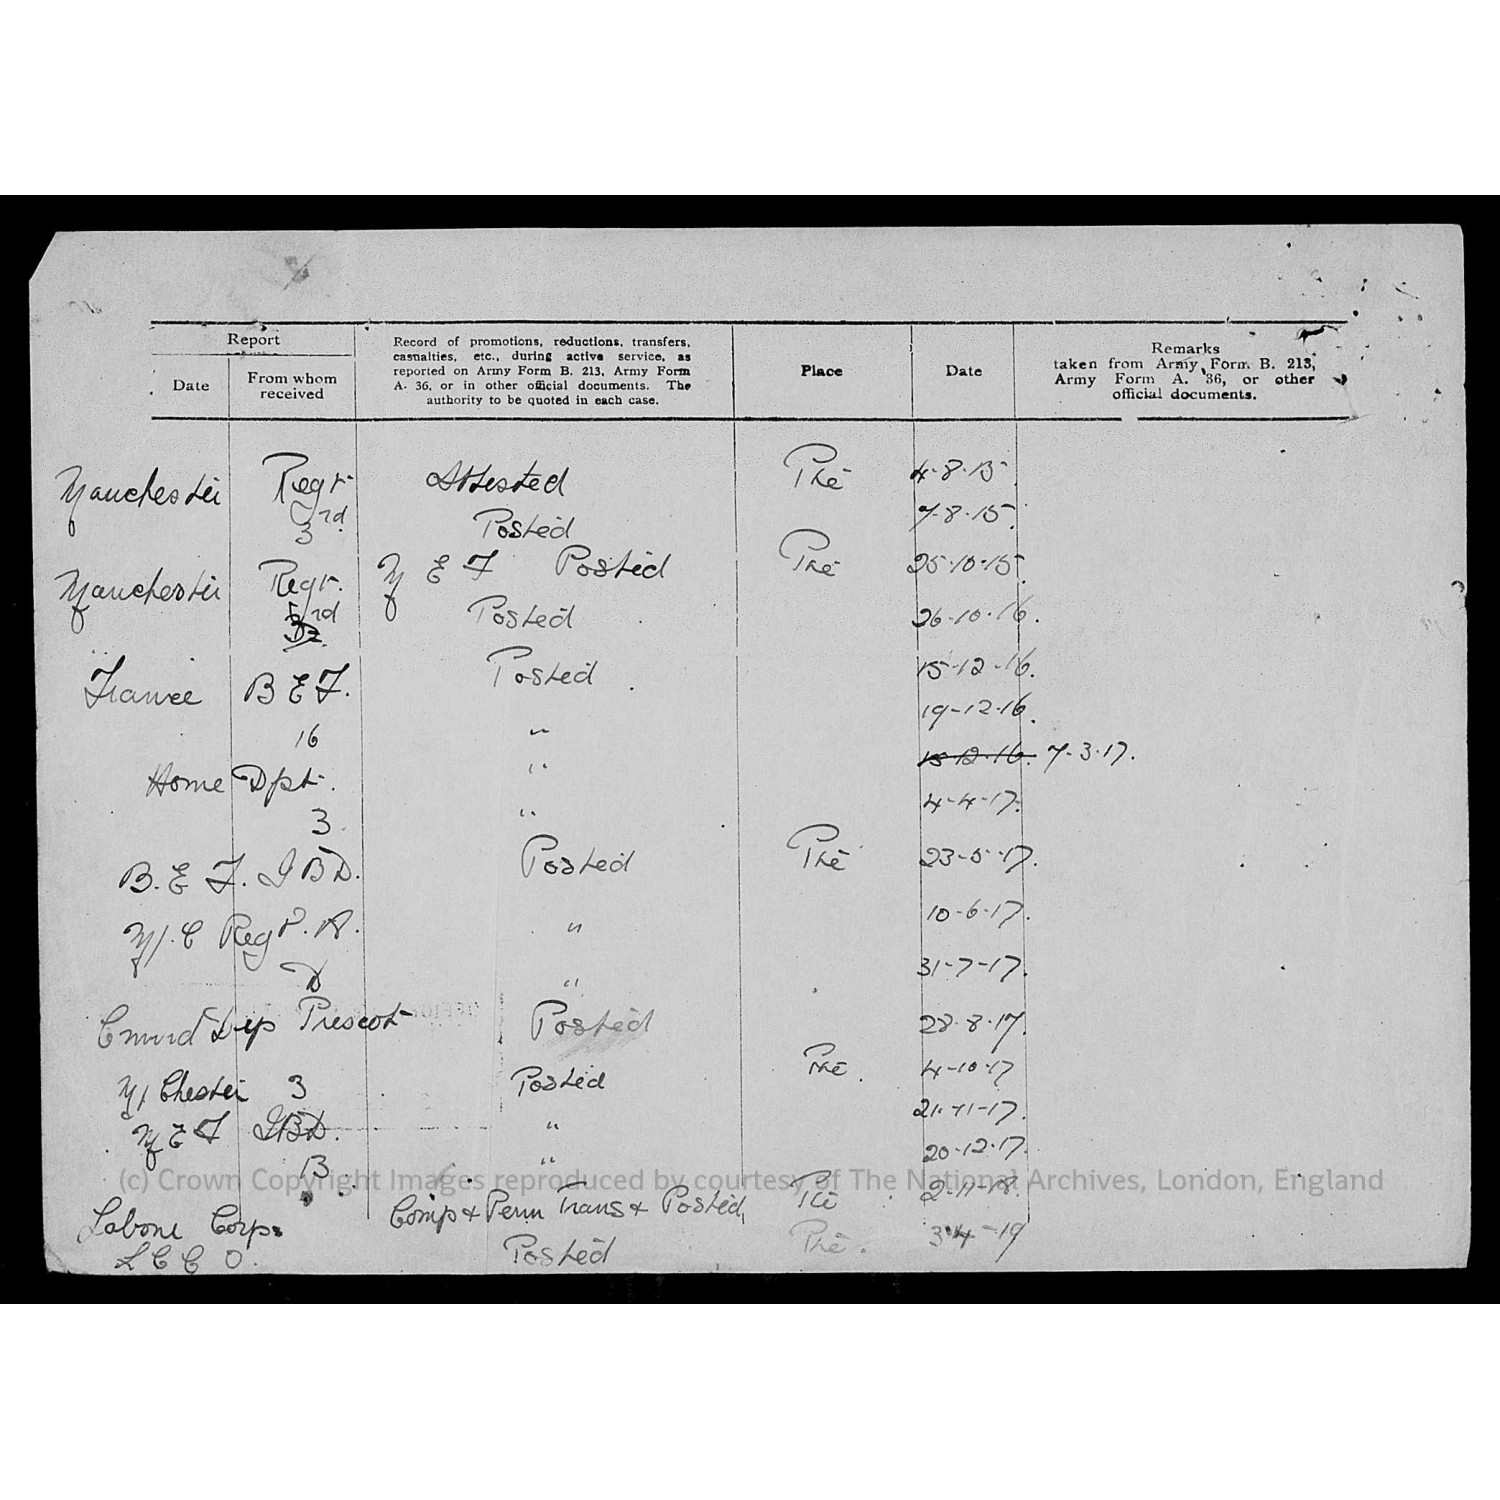 Report
Date
From whom received
Record of promotions, reductions, transfers, casualties, etc., during active service, as reported on Army Form B. 213, Army Form A. 36, or in other official documents. The authority to be quoted in each case.
Place
Date
Remarks taken from Army Form B. 213, Army Form A. 36, or other official documents.
Manchester Regt Attested Pte 4-8-15
3rd Posted 7-8-15.
Manchester Regt. M E F Posted Pte 25-10-15
3rd Posted 26-10-16.
France B E F. Posted 15-12-16.
16 " 19-12-16.
Home Dpt. " 15-12-16. 7-3-17.
3 " 4-4-17.
B. E F. I B D. Posted Pte 23-5-17.
M/C Regt. A. " 10-6-17.
D " 31-7-17.
Cmmd Dep Prescot Posted 28-8-17.
M/Chester 3 Posted Pte. 4-10-17
M E F I B D. " 21-11-17.
B " 20-12-17.
(c) Crown Copyright Images reproduced by courtesy of The National Archives, London, England
Labour Corps Comp & Perm Trans & Posted Pte 2-11-18.
L C C O. Posted Pte. 3-4-19